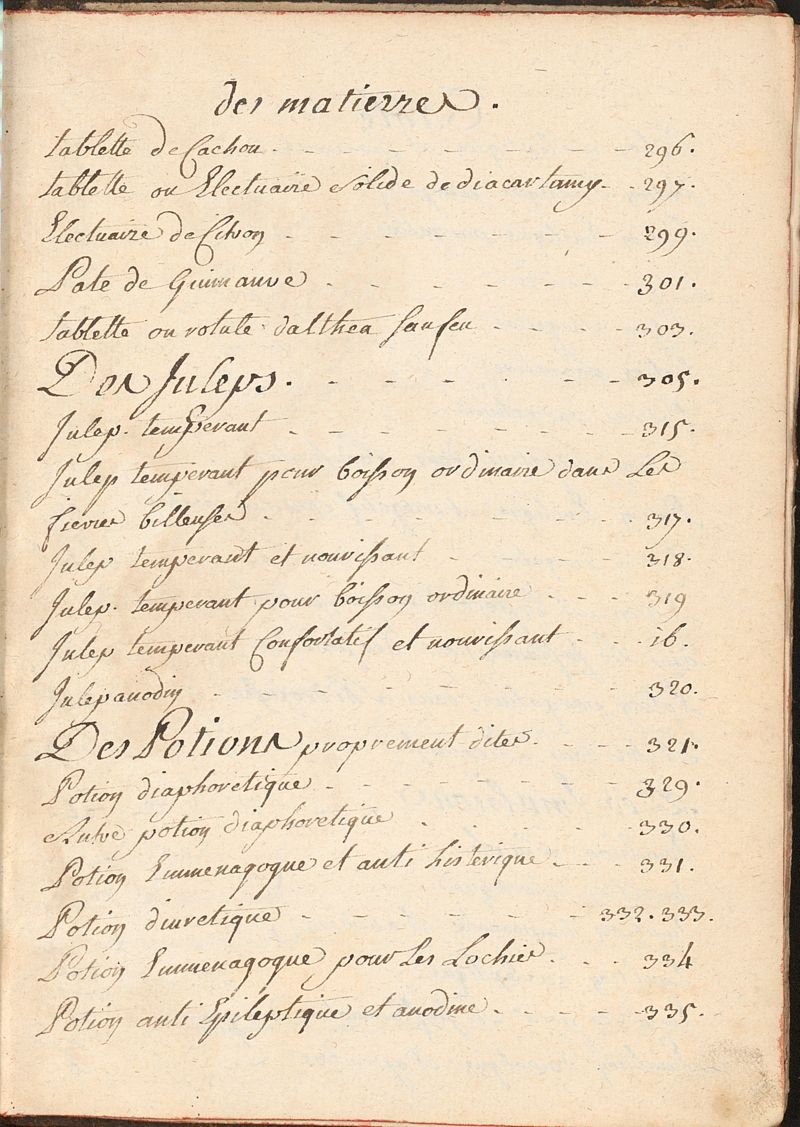 des matierres.
tablette de Cachou - - - - - - - - - 296.
tablette ou Electuaire solide de diacartamy - - 297.
Electuaire de Citron - - - - - - - - 299.
Pate de Guimauve - - - - - - - 301.
tablette ou rotule d'althea sans feu - - - - 303.
Des Juleps. - - - - - - - 305.
Julep. temperant - - - - - - - - - 315.
Julep temperant pour boisson ordinaire dans Les
fievres billeuses - - - - - - - - - 317.
Julep temperant et nourissant - - - - - 318.
Julep. temperant pour boisson ordinaire - - - 319
Julep temperant Confortatif et nourissant - - - ib.
Julep anodin - - - - - - - - - - 320.
Des Potions proprement dites. - - - - 321.
Potion diaphoretique - - - - - - - - 329.
Autre potion diaphoretique - - - - - - 330.
Potion Emmenagogue et anti histerique - - - - 331.
Potion diuretique - - - - - - - - 332.333.
Potion Emmenagogue pour Les Lochies. - - - 334
Potion anti Epileptique et anodine - - - - - 335.